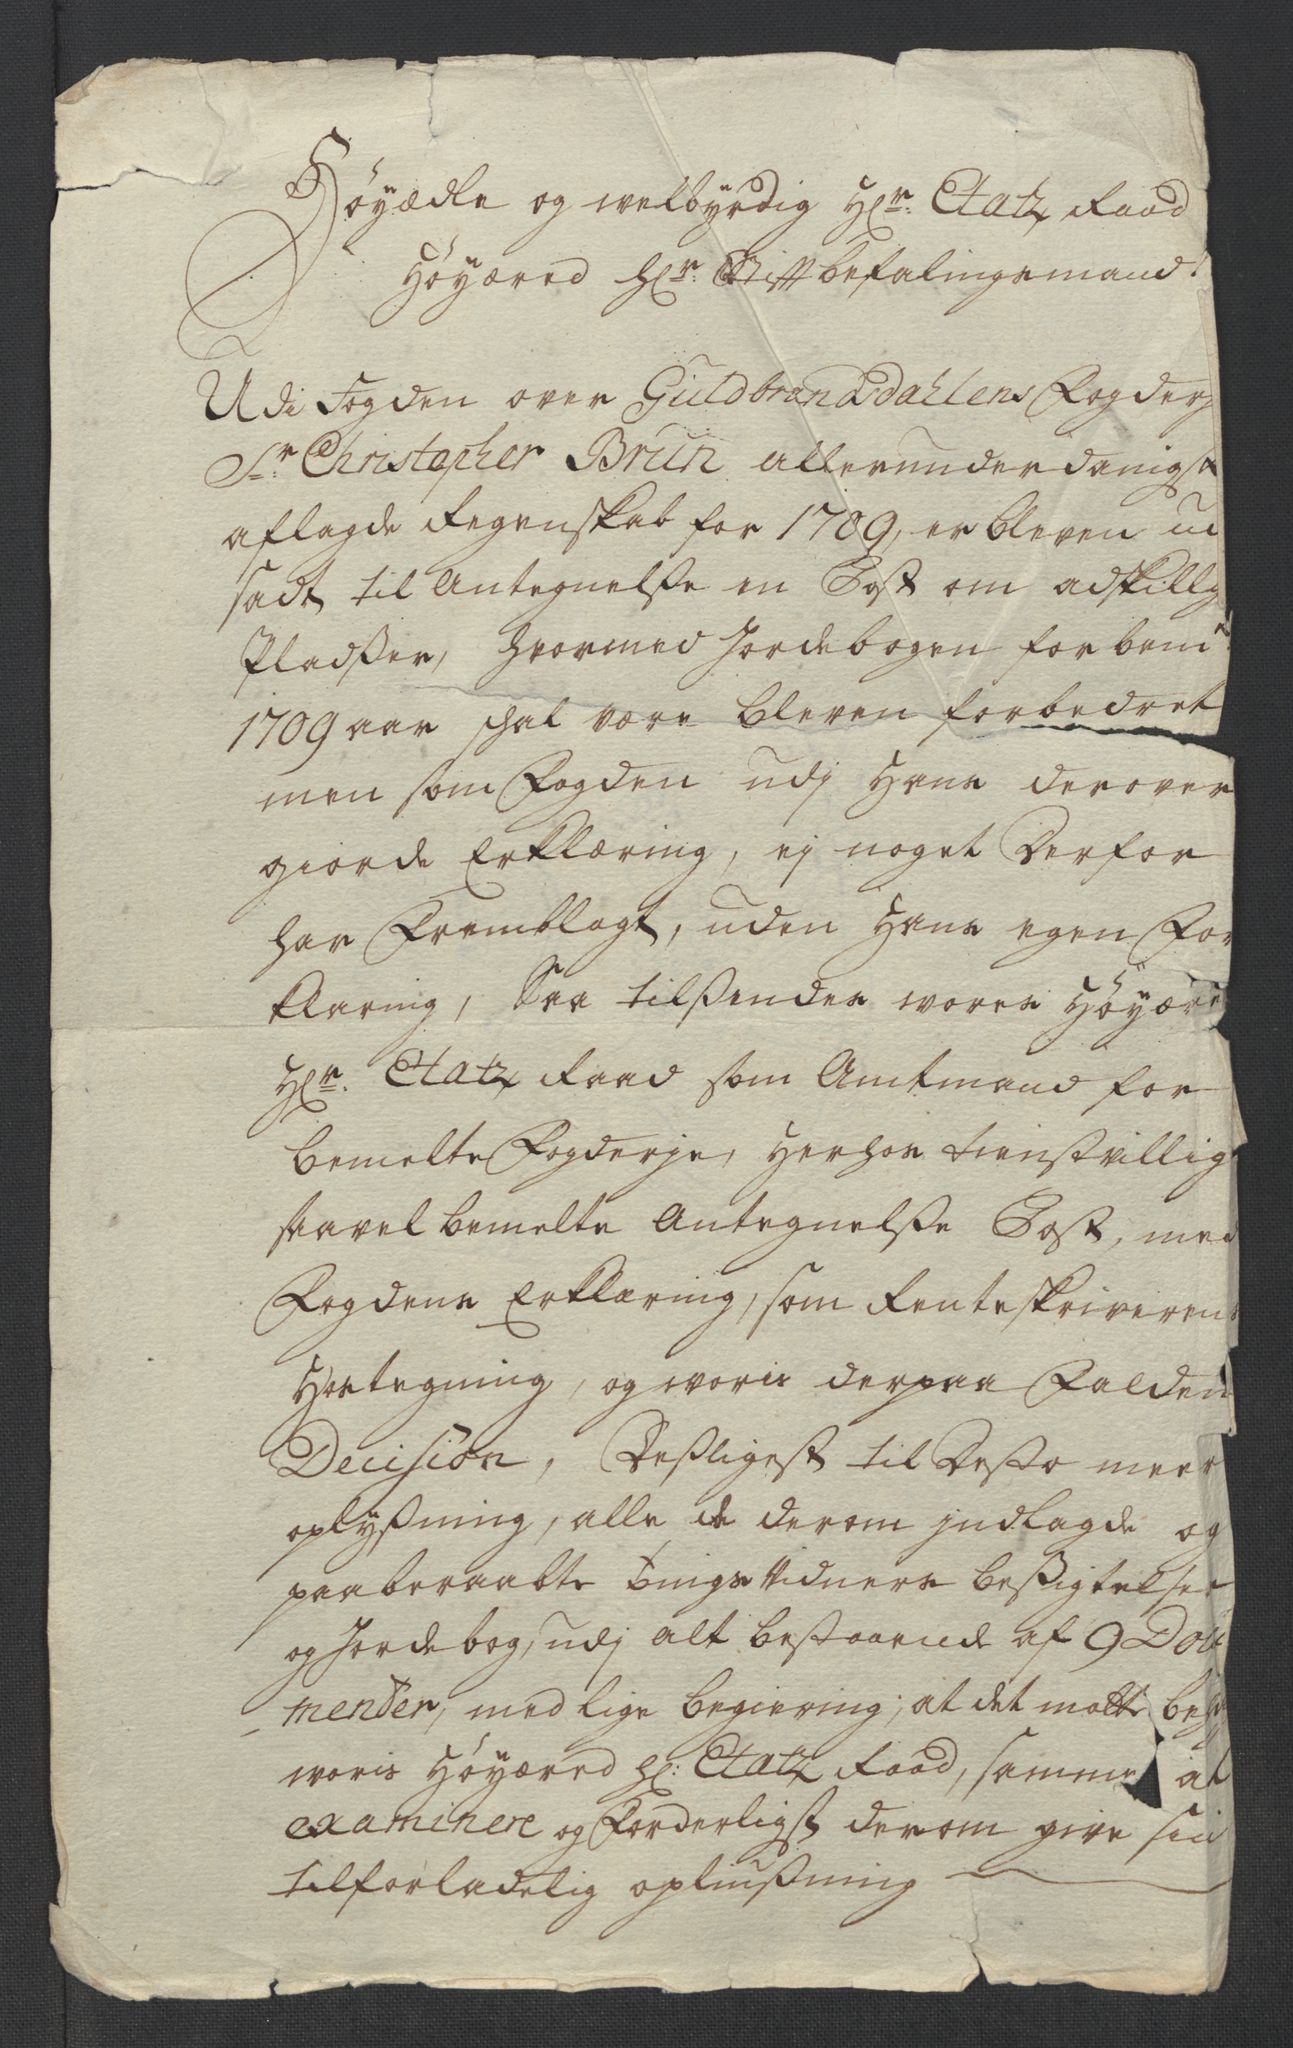 Høyædle og welbyrdig Hr: Etatz Raad
Høyæred hr: Stiftbefalingsmand!
Udi Fogden over Guldbrandsdahlens Fogderj
Sr: Christopher Brun allerunderdanigst
aflagde Regenskab for 1709, er bleven ud
sadt til Antegnelße en Post om adskillig
Pladßer, hvormed Jordebogen for bemte:
1709 aar schal være bleven forbedret
men som Fogden udj Hans derover
giorde Erklæring, ej noget Derfor
har Fremblagt, uden Hans egen For
klaring, Saa tilßendes wores Høyære
Hr: Etatz Raad som Amtmand for
bemelte Fogderje, Herhos tienstvillig
saavel bemelte Antegnelße Post, med
Fogdens Erklæring, som Renteskriverens
Hostegning, og woris derpaa Falden
Decision, Deßligest til Desto meer
oplyßning, alle de derom jndlagde og
paaberaabte Tings Vidners Beßigtelser
og Jordebog, udj alt bestaaende af 9 Docu
menter, med lige begiering, at det motte beha
woris Høyæred H: Etatz Raad, samme at
examinere og Forderligst derom give sin
tilforladelig opliußning